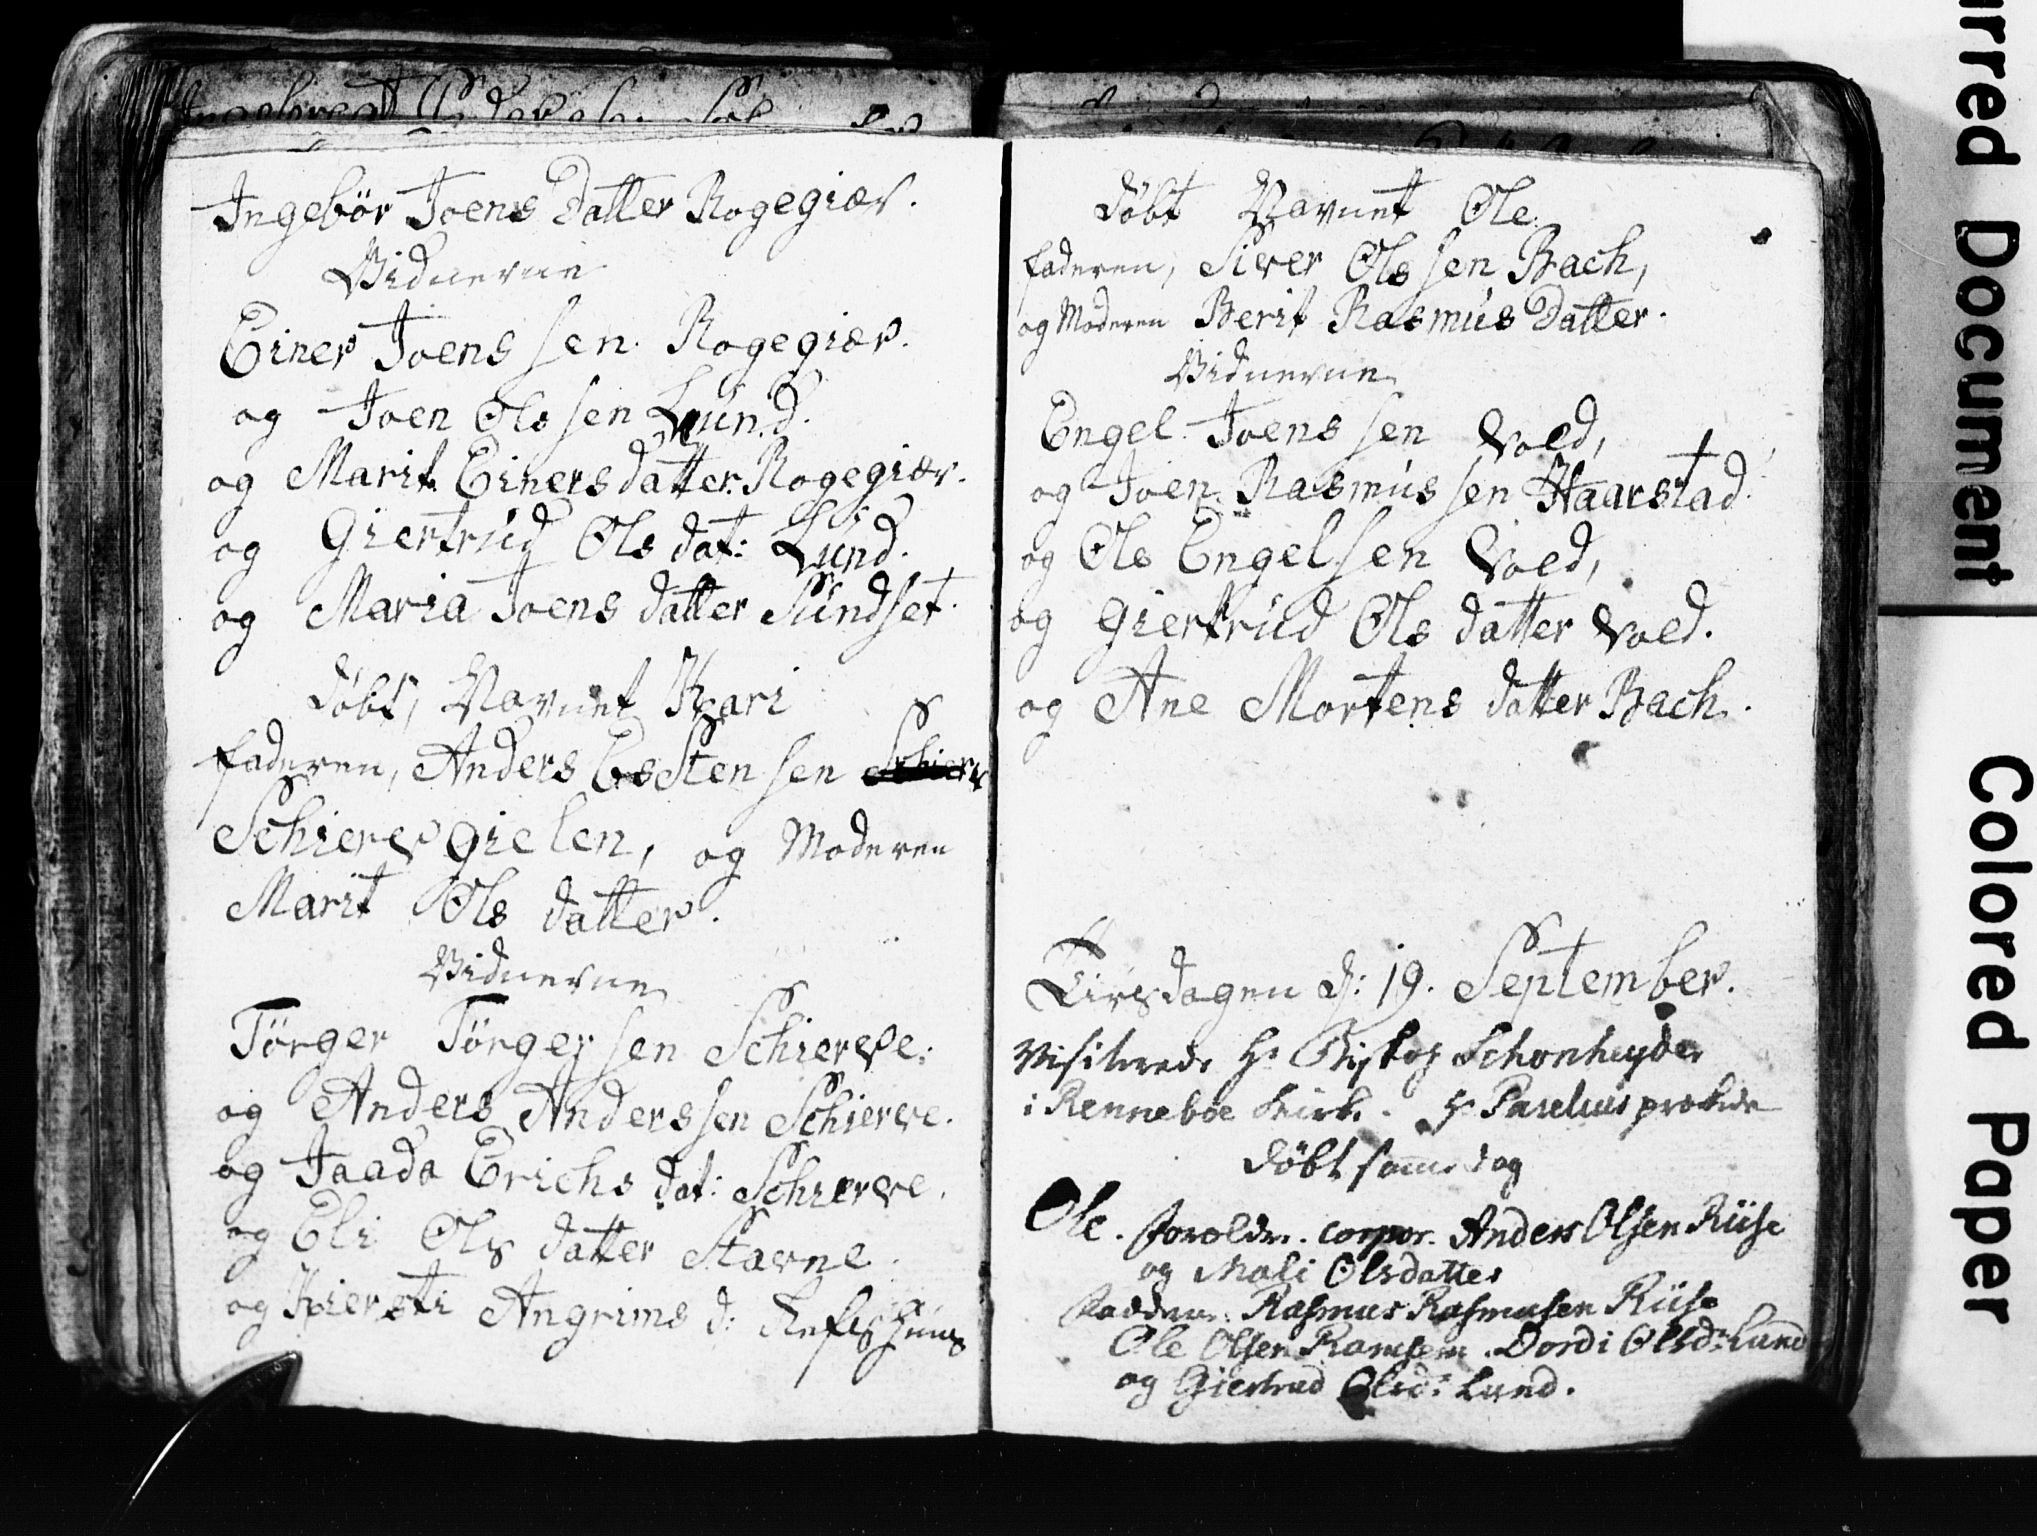 Ingebör Joens Datter Rogegiær.
Vidnerne
Einer Joens sen Rogegiær.
og Joen Ols sen Lund.
og Marit Einers datter Rogegiær.
og Giertrud Ols dat: Lund.
og Maria Joens datter Sundset.
döbt, Navnet Kari
faderen, Anders EsSten sen
Schierve gielen, og Moderen
Marit Ols datter.
Vidnerne
Törger Törger sen Schierve.
og Anders Anders sen Schierve.
og Jaada Erichs dat: Schierve.
og Eli Ols datter Stavne.
og Kiersti Angrims d: Refshuus
döbt Navnet Ole.
faderen, Siver Ols sen Bach,
og Moderen Berit Rasmus Datter.
Vidnerne
Engel Joens sen Vold,
og Joen Rasmus sen Haarstad.
og Ole Engel sen Vold,
og Giertrud Ols datter Vold.
og Ane Mortens datter Bach.
Tirsdagen d: 19. September.
Visiterede Hr Biskop Schønheyder
i Renneboe Kirke. Hr Parelius prækede
döbt samme dag
Ole. Forældre. corpor. Anders Olsen Riise
og Mali Olsdatter
Faddere. Rasmus Rasmusen Riise
Ole Olsen Ramsem. Dordi Olsd: Lund
og Giertrud Olsd: Lund.
Document
Colored Paper